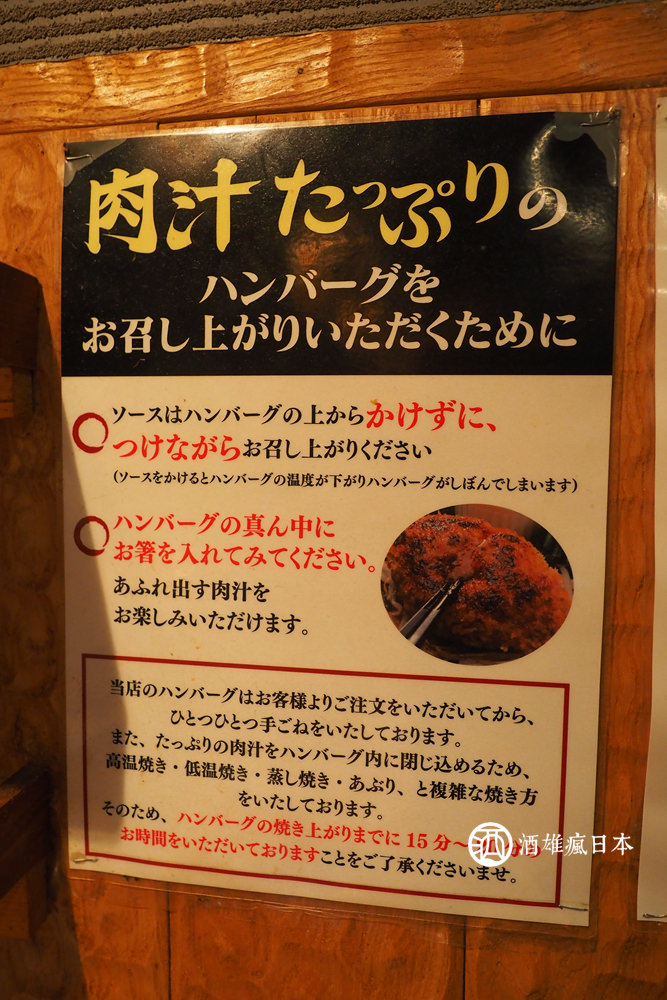 肉汁たっぷりの
ハンバーグを
お召し上がりいただくために
ソースはハンバーグの上からかけずに、
つけながらお召し上がりください
(ソースをかけるとハンバーグの温度が下がりハンバーグがしぼんでしまいます)
ハンバーグの真ん中に
お箸を入れてみてください。
あふれ出す肉汁を
お楽しみいただけます。
当店のハンバーグはお客様よりご注文をいただいてから、
ひとつひとつ手ごねをいたしております。
また、たっぷりの肉汁をハンバーグ内に閉じ込めるため、
高温焼き・低温焼き・蒸し焼き・あぶり、と複雑な焼き方
をいたしております。
そのため、ハンバーグの焼き上がりまでに15分〜
お時間をいただいておりますことをご了承くださいませ。
酒 酒雄瘋日本